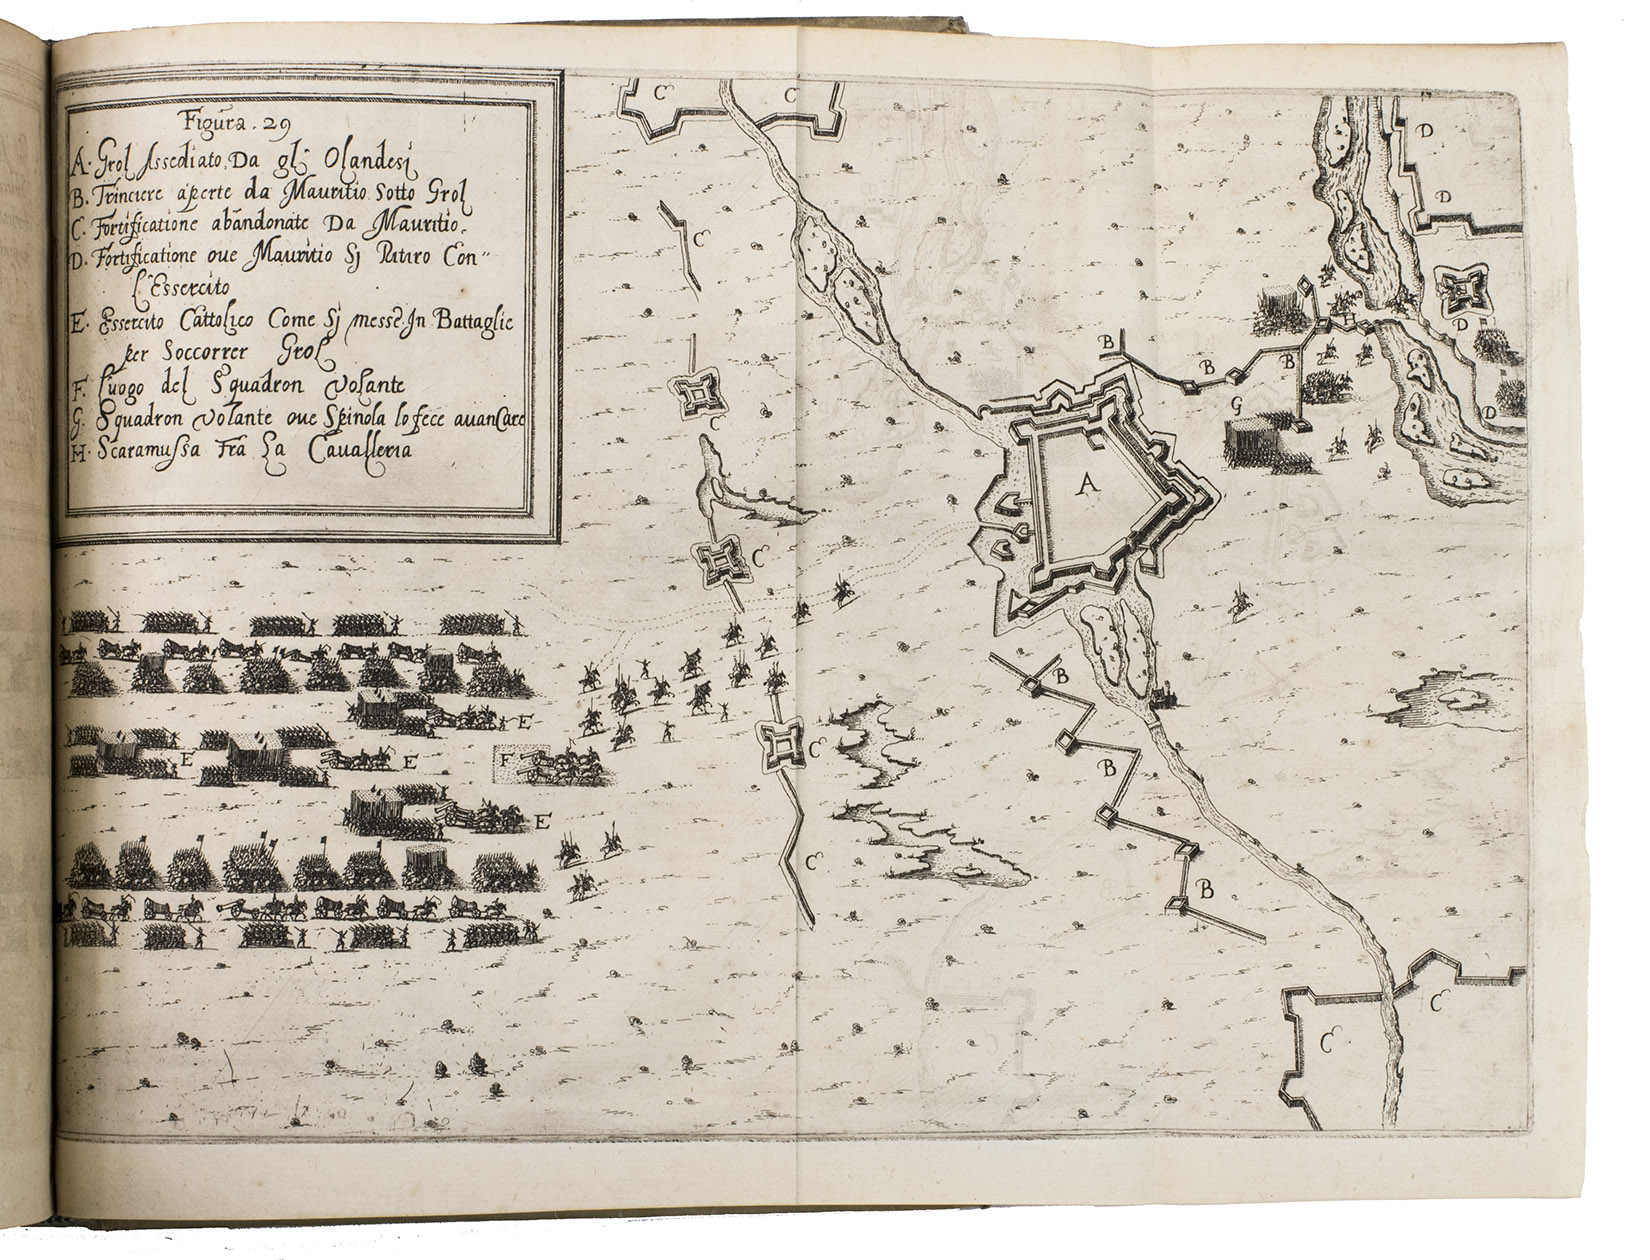 Figura. 29
A. Grol Assediato, Da gli Olandesi
B. Trinciere aperte da Mauritio Sotto Grol
C. Fortificatione abandonate Da Mauritio.
D. Fortificatione oue Mauritio Si Ritiro Con"
L'Essercito
E. Essercito Cattolico Come Si messe In Battaglie
per Soccorrer Grol
F. Luogo del Squadron Volante
G. Squadron Volante oue Spinola lo fece auanCare
H. Scaramussa Fra La Caualleria
C C
D
D
C
H
D
B
B
B
C
G
D
A
C
B
E
E
E
F
C
B
E
C
B
C
C